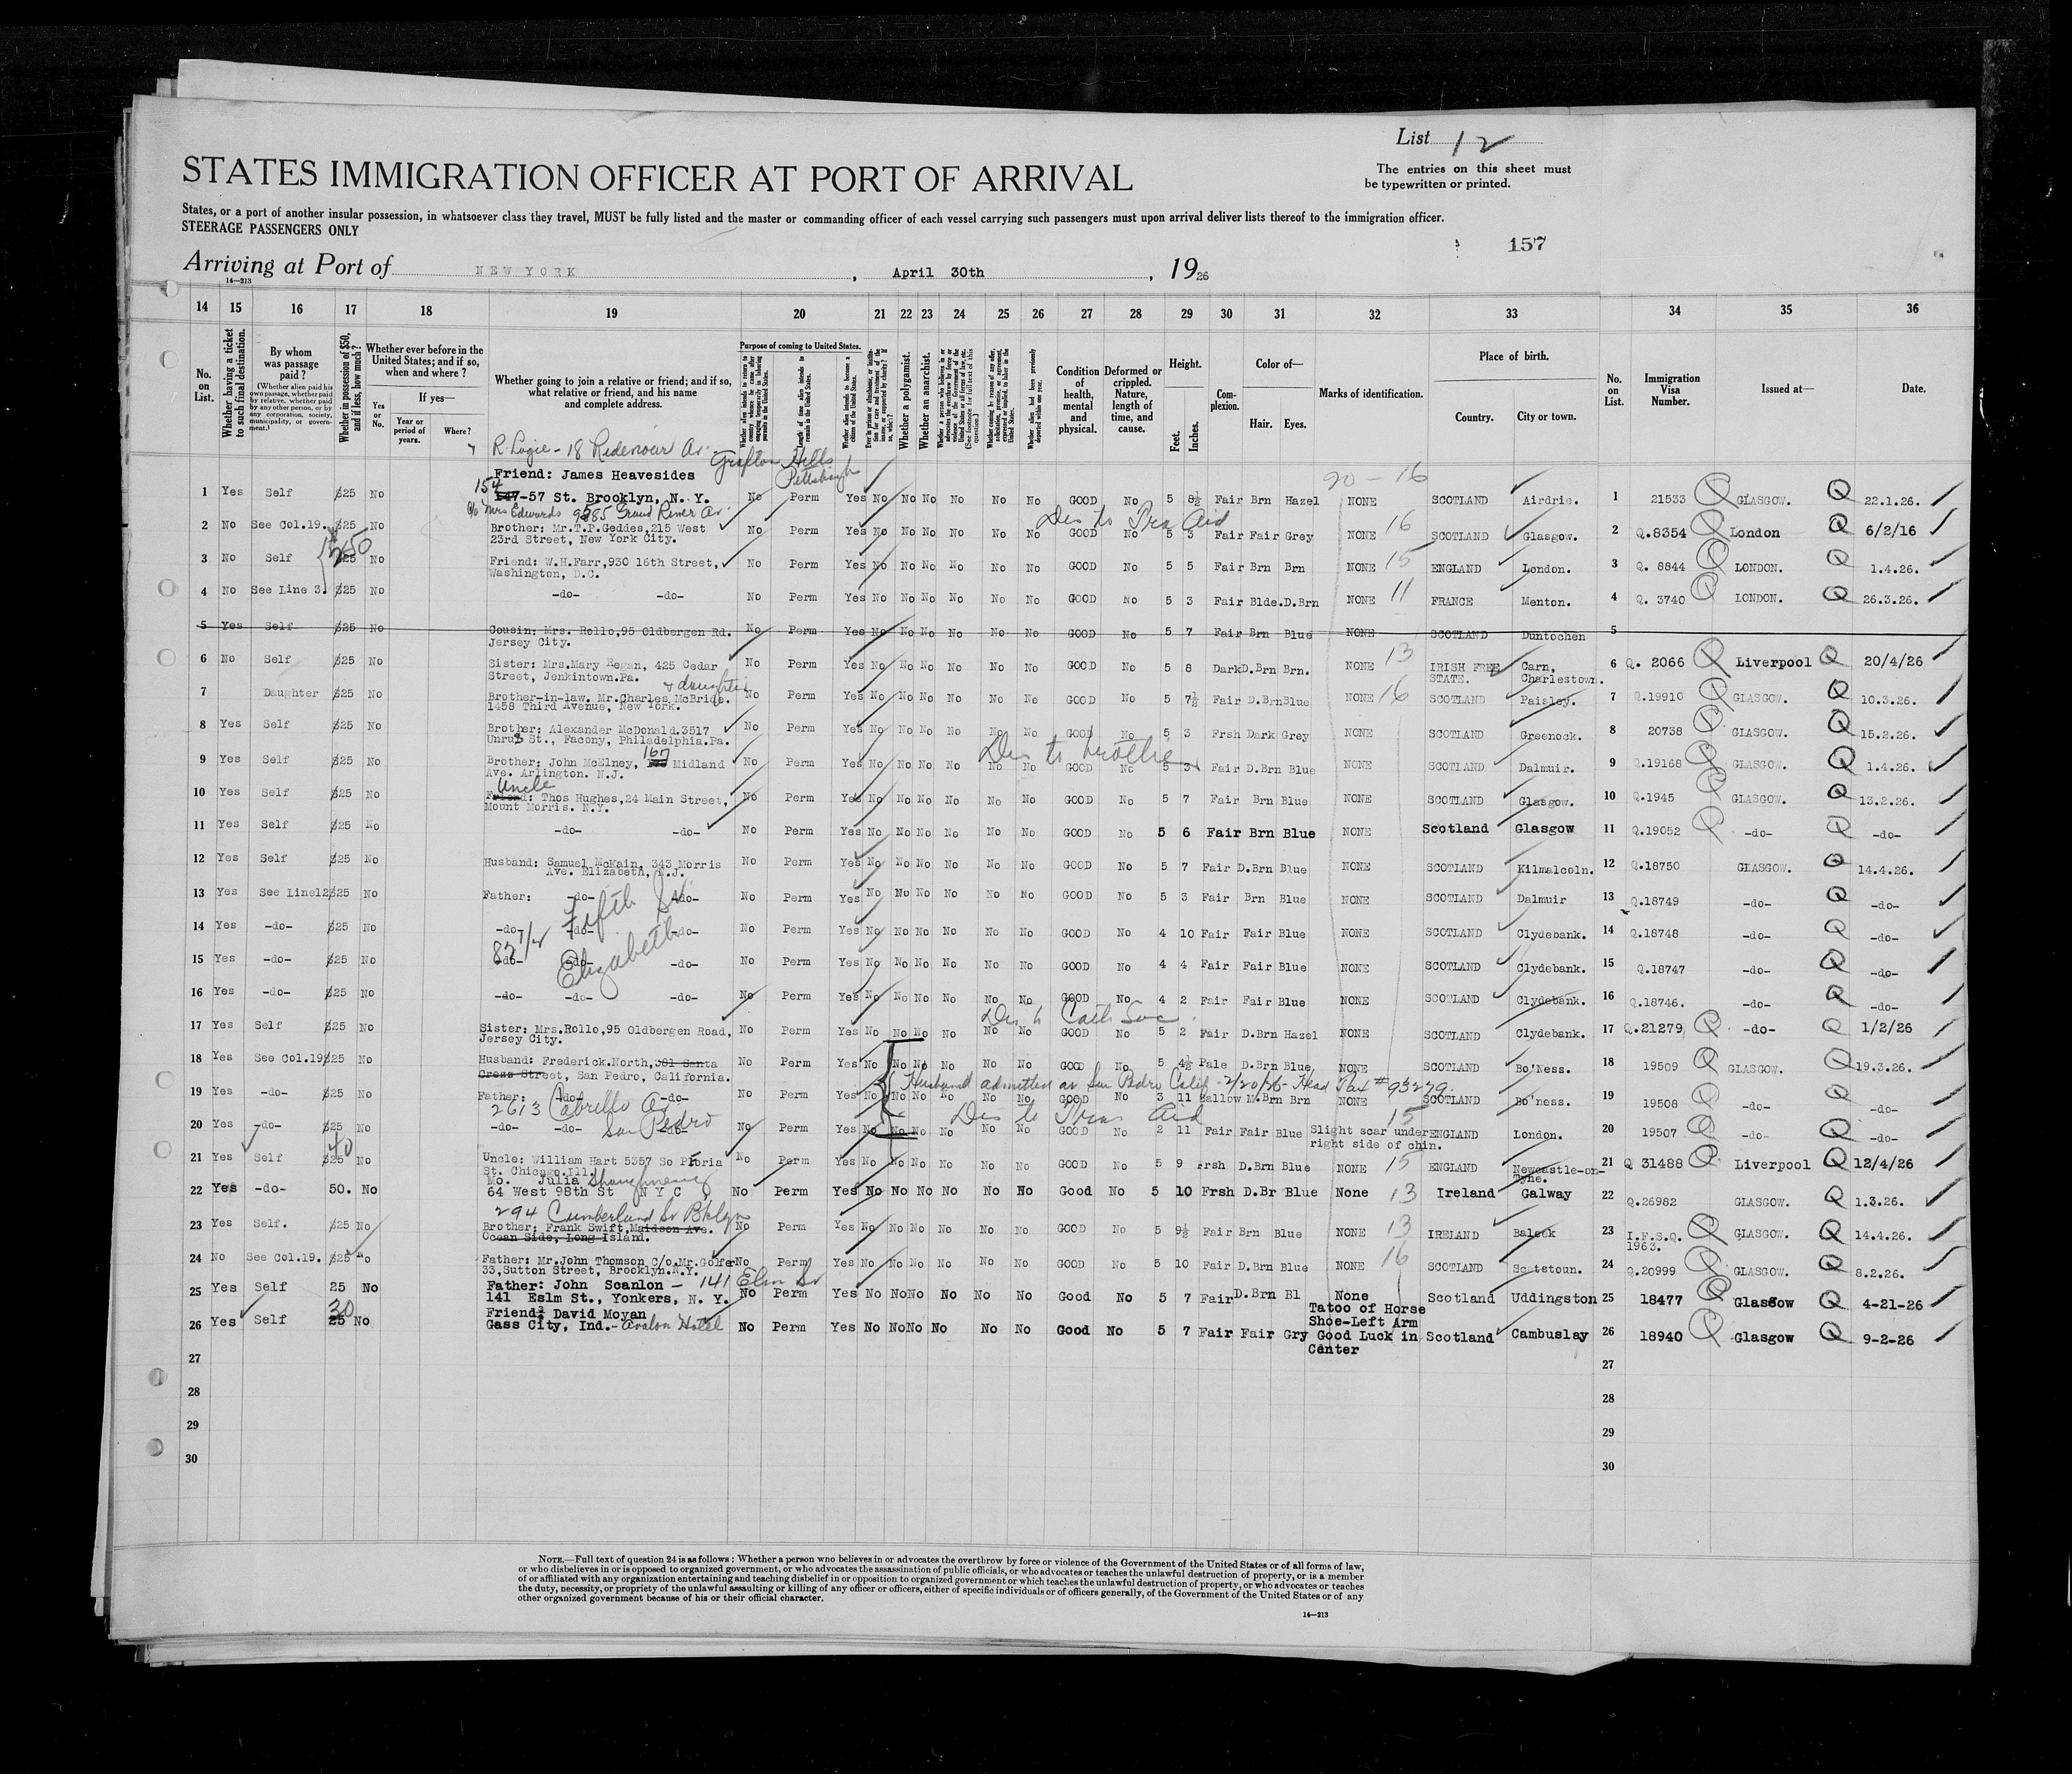 List 12
STATES IMMIGRATION OFFICER AT PORT OF ARRIVAL
The entries on this sheet must
be typewritten or printed.
States, or a port of another insular possession, in whatsoever class they travel, MUST be fully listed and the master or commanding officer of each vessel carrying such passengers must upon arrival deliver lists thereof to the immigration officer.
STEERAGE PASSENGERS ONLY
157
Arriving at Port of NEW YORK, April 30th, 1926
14—213
14 15 16 17 18 19 20 21 22 23 24 25 26 27 28 29 30 31 32 33 34 35 36
No. on List.
Whether having a ticket to such final destination.
By whom was passage paid?
(Whether alien paid his own passage, whether paid by relative, whether paid by any other person, or by any corporation, society, municipality, or government.)
Whether in possession of $50, and if less, how much?
Whether ever before in the United States; and if so, when and where?
Yes or No.
If yes—
Year or period of years.
Where?
Whether going to join a relative or friend; and if so, what relative or friend, and his name and complete address.
Purpose of coming to United States.
Whether a polygamist.
Whether an anarchist.
Condition of health, mental and physical.
Deformed or crippled. Nature, length of time, and cause.
Height.
Feet. Inches.
Complexion.
Color of—
Hair. Eyes.
Marks of identification.
Place of birth.
Country. City or town.
No. on List.
Immigration Visa Number.
Issued at—
Date.
R. Logie - 18 Ridenour Av. Grafton Hills Pittsburgh
20 - 16
1 Yes Self $25 No Friend: James Heavesides 154 147-57 St. Brooklyn, N. Y. No Perm Yes No No No No No No GOOD No 5 8½ Fair Brn Hazel NONE SCOTLAND Airdrie. 1 21533 GLASGOW. 22.1.26.
c/o Mrs Edwards 9585 Grand River Av.
2 No See Col.19. $25 No Brother: Mr.T.P.Geddes,215 West 23rd Street, New York City. No Perm Yes No No No No No No GOOD No 5 3 Fair Fair Grey NONE 16 SCOTLAND Glasgow. 2 Q.8354 London 6/2/16
Dis to Tra Aid
3 No Self $25 No Friend: W.H.Farr,930 16th Street, Washington, D.C. No Perm Yes No No No No No No GOOD No 5 5 Fair Brn Brn NONE 15 ENGLAND London. 3 Q. 8844 LONDON. 1.4.26.
4 No See Line 3. $25 No -do- -do- No Perm Yes No No No No No No GOOD No 5 3 Fair Blde.D.Brn NONE 11 FRANCE Menton. 4 Q. 3740 LONDON. 26.3.26.
5 Yes Self $25 No Cousin: Mrs. Rollo,95 Oldbergen Rd. Jersey City. No Perm Yes No No No No No No GOOD No 5 7 Fair Brn Blue NONE SCOTLAND Duntochen 5
6 No Self $25 No Sister: Mrs.Mary Regan, 425 Cedar Street, Jenkintown.Pa. No Perm Yes No No No No No No GOOD No 5 8 Dark D.Brn Brn. NONE 13 IRISH FREE STATE. Carn, Charlestown. 6 Q. 2066 Liverpool 20/4/26
7 Daughter $25 No Brother-in-law. Mr.Charles McBride. + daughter 1458 Third Avenue, New York. No Perm Yes No No No No No No GOOD No 5 7½ Fair D.Brn Blue NONE 16 SCOTLAND Paisley. 7 Q.19910 GLASGOW. 10.3.26.
8 Yes Self $25 No Brother: Alexander McDonald.3517 Unruh St., Facony, Philadelphia.Pa. No Perm Yes No No No No No No GOOD No 5 3 Frsh Dark Grey NONE SCOTLAND Greenock. 8 20738 GLASGOW. 15.2.26.
Dis to brother
9 Yes Self $25 No Brother: John McElney, 167 Midland Ave. Arlington. N.J. No Perm Yes No No No No No No GOOD No 5 3 Fair D.Brn Blue NONE SCOTLAND Dalmuir. 9 Q.19168 GLASGOW. 1.4.26.
Uncle
10 Yes Self $25 No Friend: Thos Hughes,24 Main Street, Mount Morris. N.Y. No Perm Yes No No No No No No GOOD No 5 7 Fair Brn Blue NONE SCOTLAND Glasgow. 10 Q.1945 GLASGOW. 13.2.26.
11 Yes Self $25 No -do- -do- No Perm Yes No No No No No No GOOD No 5 6 Fair Brn Blue NONE Scotland Glasgow 11 Q.19052 -do- -do-
12 Yes Self $25 No Husband: Samuel McKain, 343 Morris Ave. Elizabeth, N.J. No Perm Yes No No No No No No GOOD No 5 7 Fair D.Brn Blue NONE SCOTLAND Kilmalcoln. 12 Q.18750 GLASGOW. 14.4.26.
13 Yes See Line12 $25 No Father: -do- -do- No Perm Yes No No No No No No GOOD No 5 3 Fair Brn Blue NONE SCOTLAND Dalmuir 13 Q.18749 -do- -do-
Fifth St. Elizabeth
14 Yes -do- $25 No -do- -do- -do- No Perm Yes No No No No No No GOOD No 4 10 Fair Fair Blue NONE SCOTLAND Clydebank. 14 Q.18748 -do- -do-
15 Yes -do- $25 No -do- -do- -do- No Perm Yes No No No No No No GOOD No 4 4 Fair Fair Blue NONE SCOTLAND Clydebank. 15 Q.18747 -do- -do-
16 Yes -do- $25 No -do- -do- -do- No Perm Yes No No No No No No GOOD No 4 2 Fair Fair Blue NONE SCOTLAND Clydebank. 16 Q.18746. -do- -do-
17 Yes Self $25 No Sister: Mrs.Rollo,95 Oldbergen Road, Jersey City. No Perm Yes No No No No No No GOOD No 5 2 Fair D.Brn Hazel NONE SCOTLAND Clydebank. 17 Q.21279 -do- 1/2/26
18 Yes See Col.19 $25 No Husband: Frederick.North,381 Santa Cress Street, San Pedro, California. No Perm Yes No No No No No No GOOD No 5 4½ Pale D.Brn Blue NONE SCOTLAND Bo'Ness. 18 19509 GLASGOW. 19.3.26.
Husband admitted at San Pedro Calif. 2/20/26 - Head Tax # 93279.
19 Yes -do- $25 No Father: -do- -do- No Perm Yes No No No No No No GOOD No 3 11 Sallow M.Brn Brn NONE SCOTLAND Bo'ness. 19 19508 -do- -do-
2613 Cabrillo Av San Pedro
Dis to Tras Aid
20 Yes -do- $25 No -do- -do- -do- No Perm Yes No No No No No No GOOD No 2 11 Fair Fair Blue Slight scar under right side of chin. 15 ENGLAND London. 20 19507 -do- -do-
21 Yes Self $25 40 No Uncle: William Hart 5357 So Peoria St. Chicago.Ill. No Perm Yes No No No No No No GOOD No 5 9 Frsh D.Brn Blue NONE 15 ENGLAND Newcastle-on-Tyne. 21 Q 31488 Liverpool 12/4/26
22 Yes -do- 50. No Mo. Julia Shaughnessy 64 West 98th St N Y C No Perm Yes No No No No No No Good No 5 10 Frsh D.Br Blue None 13 Ireland Galway 22 Q.26982 GLASGOW. 1.3.26.
294 Cumberland St Bklyn
23 Yes Self. $25 No Brother: Frank Swift,Maidson Ave. Ocean Side, Long Island. No Perm Yes No No No No No No GOOD No 5 9½ Fair Brn Blue NONE 13 IRELAND Baleek 23 I.F.S.Q. 1963. GLASGOW. 14.4.26.
24 No See Col.19. $25 No Father: Mr.John Thomson C/o.Mr.Golfer 33,Sutton Street, Brooklyn.N.Y. No Perm Yes No No No No No No GOOD No 5 10 Fair D.Brn Blue NONE 16 SCOTLAND Scotstoun. 24 Q.20999 GLASGOW. 8.2.26.
25 Yes Self 25 No Father: John Scanlon — 141 Elm St 141 Eslm St., Yonkers, N. Y. No Perm Yes No No No No No No Good No 5 7 Fair D.Brn Bl None Scotland Uddingston 25 18477 Glasgow 4-21-26
26 Yes Self 30 25 No Friend: David Moyan Gass City, Ind.- Avalon Hotel No Perm Yes No No No No No No Good No 5 7 Fair Fair Gry Tatoo of Horse Shoe-Left Arm Good Luck in Center Scotland Cambuslay 26 18940 Glasgow 9-2-26
27 27
28 28
29 29
30 30
NOTE.—Full text of question 24 is as follows: Whether a person who believes in or advocates the overthrow by force or violence of the Government of the United States or of all forms of law,
or who disbelieves in or is opposed to organized government, or who advocates the assassination of public officials, or who advocates or teaches the unlawful destruction of property, or is a member
of or affiliated with any organization entertaining and teaching disbelief in or opposition to organized government or which teaches the unlawful destruction of property, or who advocates or teaches
the duty, necessity, or propriety of the unlawful assaulting or killing of any officer or officers, either of specific individuals or of officers generally, of the Government of the United States or of any
other organized government because of his or their official character.
14—213